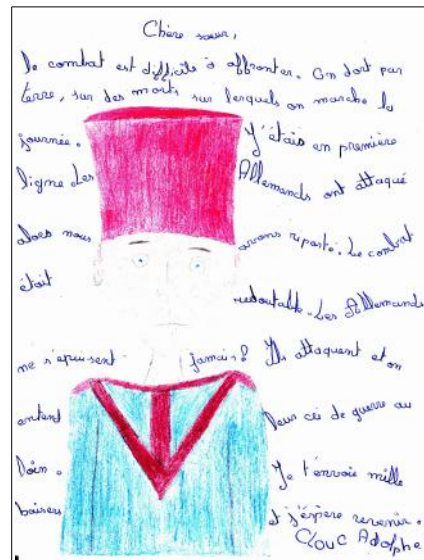 Chère sœur,
le combat est difficile à affronter. On dort par
terre, sur des morts sur lesquels on marche la
journée. J'étais en première
ligne. Les Allemands ont attaqué
alors nous avons riposté. Le combat
était redoutable. Les Allemands
ne s'épuisent jamais? Ils attaquent et on
entend leur cri de guerre au
loin. Je t'envoie mille
baisers et j'espère revenir.
Clouc Adolphe